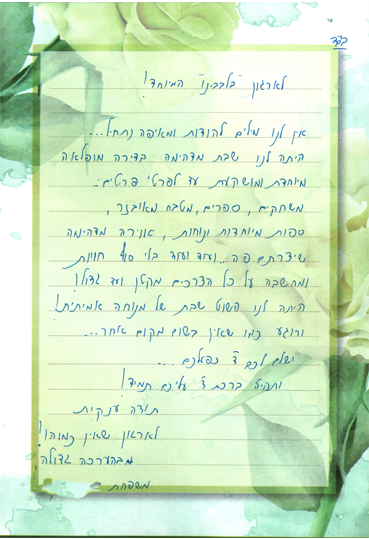 בס"ד
לארגון "בלבבינו" המיוחד!
אין לנו מילים להודות ומאיפה נתחיל...
היתה לנו שבת מדהימה בדירה מופלאה
מיוחדת ומושקעת עד לפרטי פרטים:
משחקים, ספרים, מטבח מאובזר,
ספות מיוחדות ונוחות, אוירה מדהימה
שיצרתם פה.. ועוד ועוד בלי סוף חוויות
ומחשבה על כל הצרכים מקטן ועד גדול!
היתה לנו פשוט שבת של מנוחה אמיתית!
ורוגע כמו שאין בשום מקום אחר...
ישלם לכם ד' כפעלכם...
ותהיה ברכת ד' עליכם תמיד!
תודה ענקית
לארגון שאין כמוהו!
מבהערכה גדולה,
משפחת